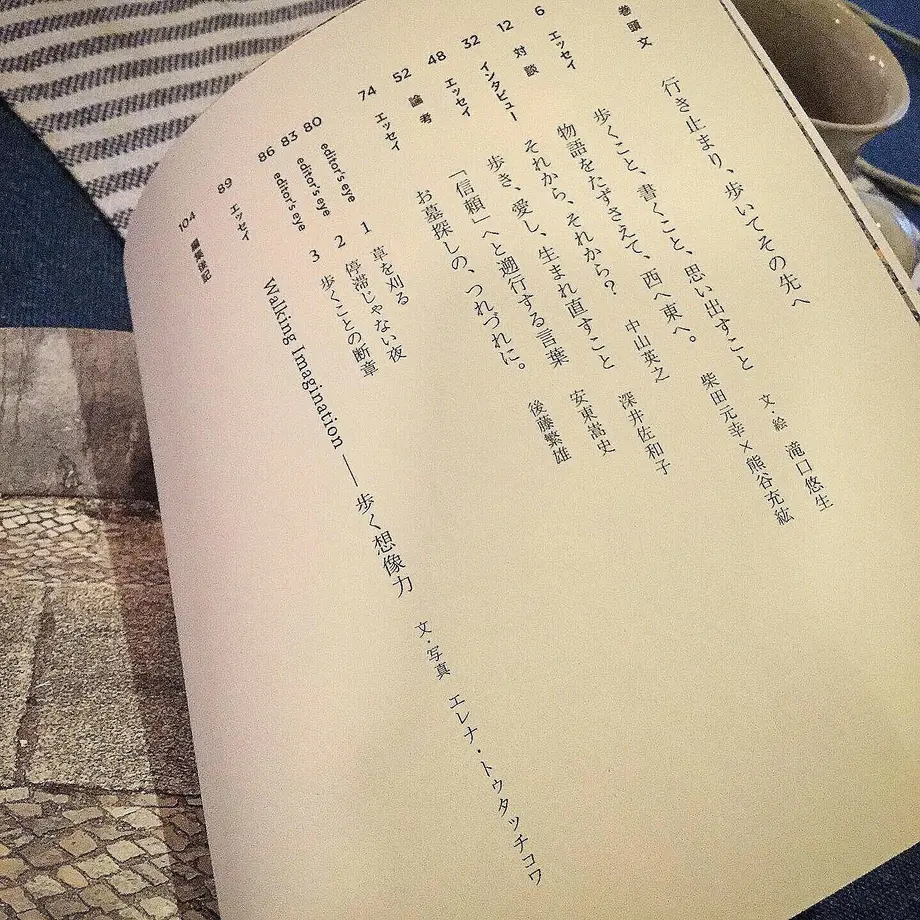 巻頭文 行き止まり、歩いてその先へ
6 エッセイ 歩くこと、書くこと、思い出すこと 文・絵 滝口悠生
12 対談 物語をたずさえて、西へ東へ。 柴田元幸×熊谷充紘
32 インタビュー それから、それから? 中山英之
48 エッセイ 歩き、愛し、生まれ直すこと 深井佐和子
52 論考 「信頼」へと遡行する言葉 安東嵩史
74 エッセイ お墓探しの、つれづれに。 後藤繁雄
80 editor's eye 1 草を刈る
83 editor's eye 2 停滞じゃない夜
86 editor's eye 3 歩くことの断章
89 エッセイ Walking Imagination ── 歩く想像力 文・写真 エレナ・トゥタッチコワ
104 編集後記